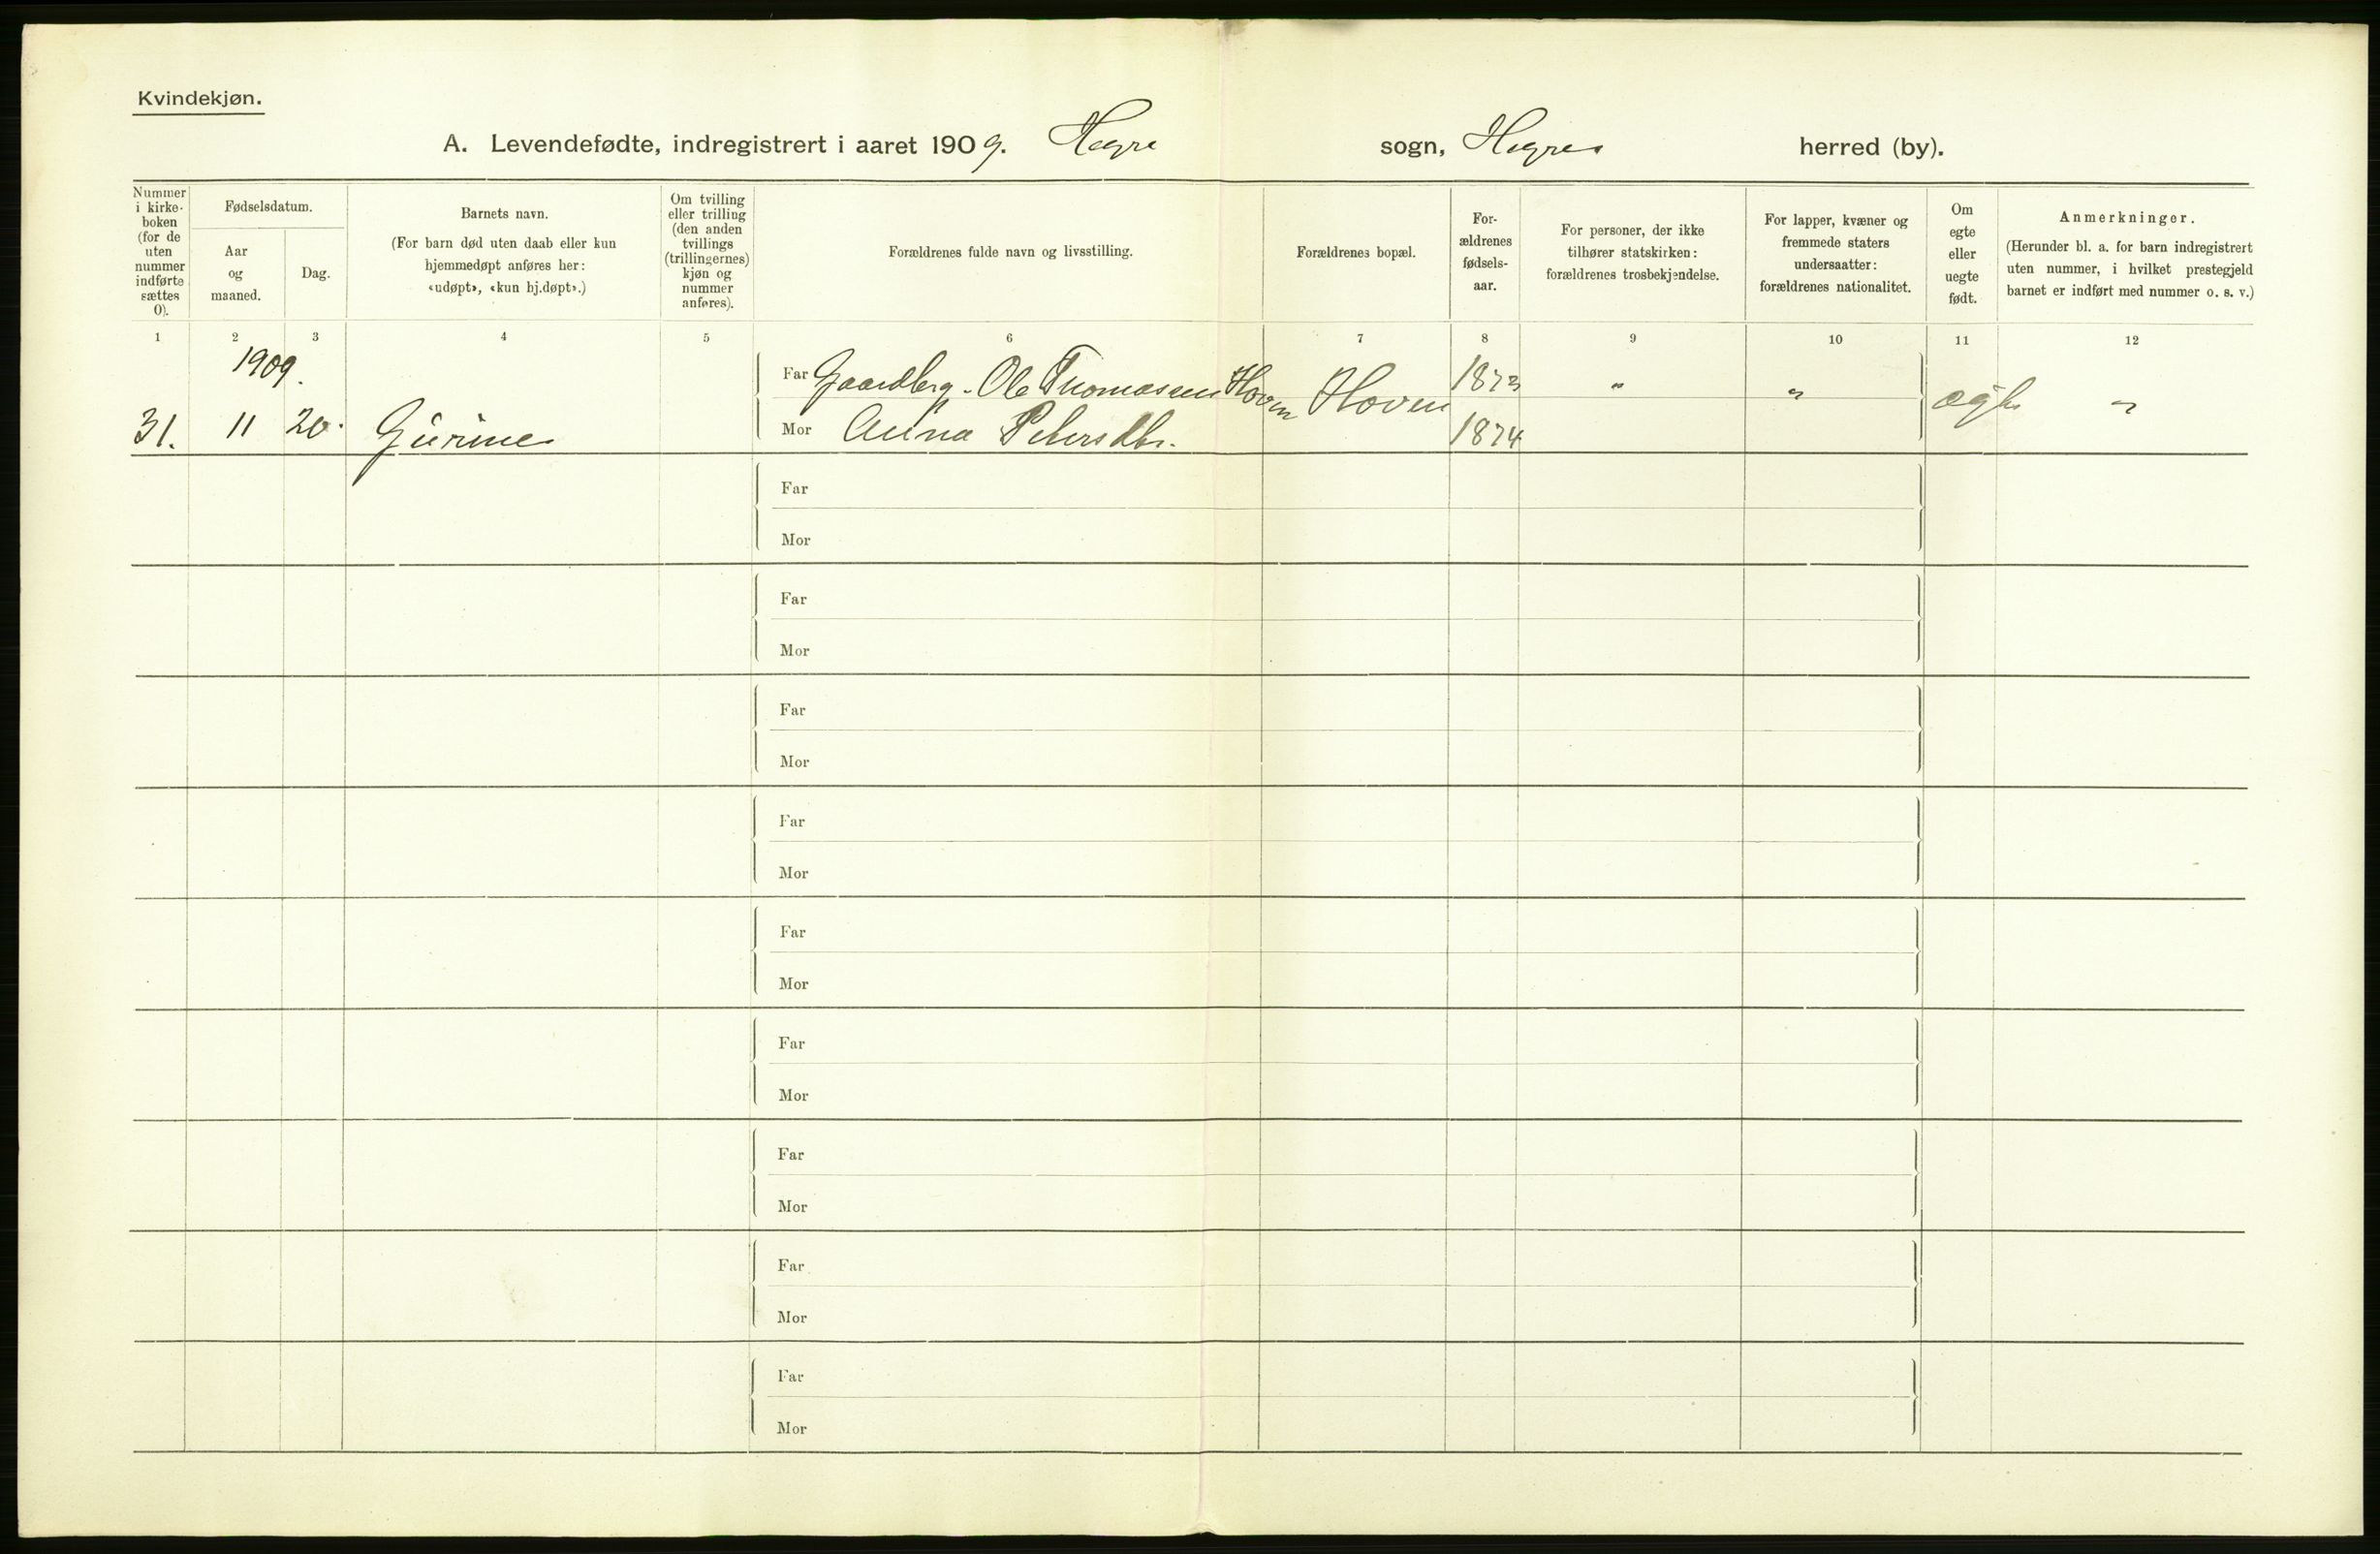 Kvindekjøn.
A. Levendefødte, indregistrert i aaret 1909. Hegre sogn, Hegre herred (by).
Nummer i kirke-boken (for de uten nummer indførte sættes 0).
Fødselsdatum.
Aar og maaned.
Dag.
Barnets navn.
(For barn død uten daab eller kun hjemmedøpt anføres her: «udøpt», «kun hj.døpt».)
Om tvilling eller trilling (den anden tvillings (trillingernes) kjøn og nummer anføres).
Forældrenes fulde navn og livsstilling.
Forældrenes bopæl.
For-ældrenes fødsels-aar.
For personer, der ikke tilhører statskirken: forældrenes trosbekjendelse.
For lapper, kvæner og fremmede staters undersaatter: forældrenes nationalitet.
Om egte eller uegte født.
Anmerkninger.
(Herunder bl. a. for barn indregistrert uten nummer, i hvilket prestegjeld barnet er indført med nummer o. s. v.)
1 2 3 4 5 6 7 8 9 10 11 12
1909.
Far Gaardbrg. Ole Thomassen Hoven Hoven 1873 " " ægte "
31. 11 20. Gurine Mor Anna Petersdtr. 1874
Far
Mor
Far
Mor
Far
Mor
Far
Mor
Far
Mor
Far
Mor
Far
Mor
Far
Mor
Far
Mor